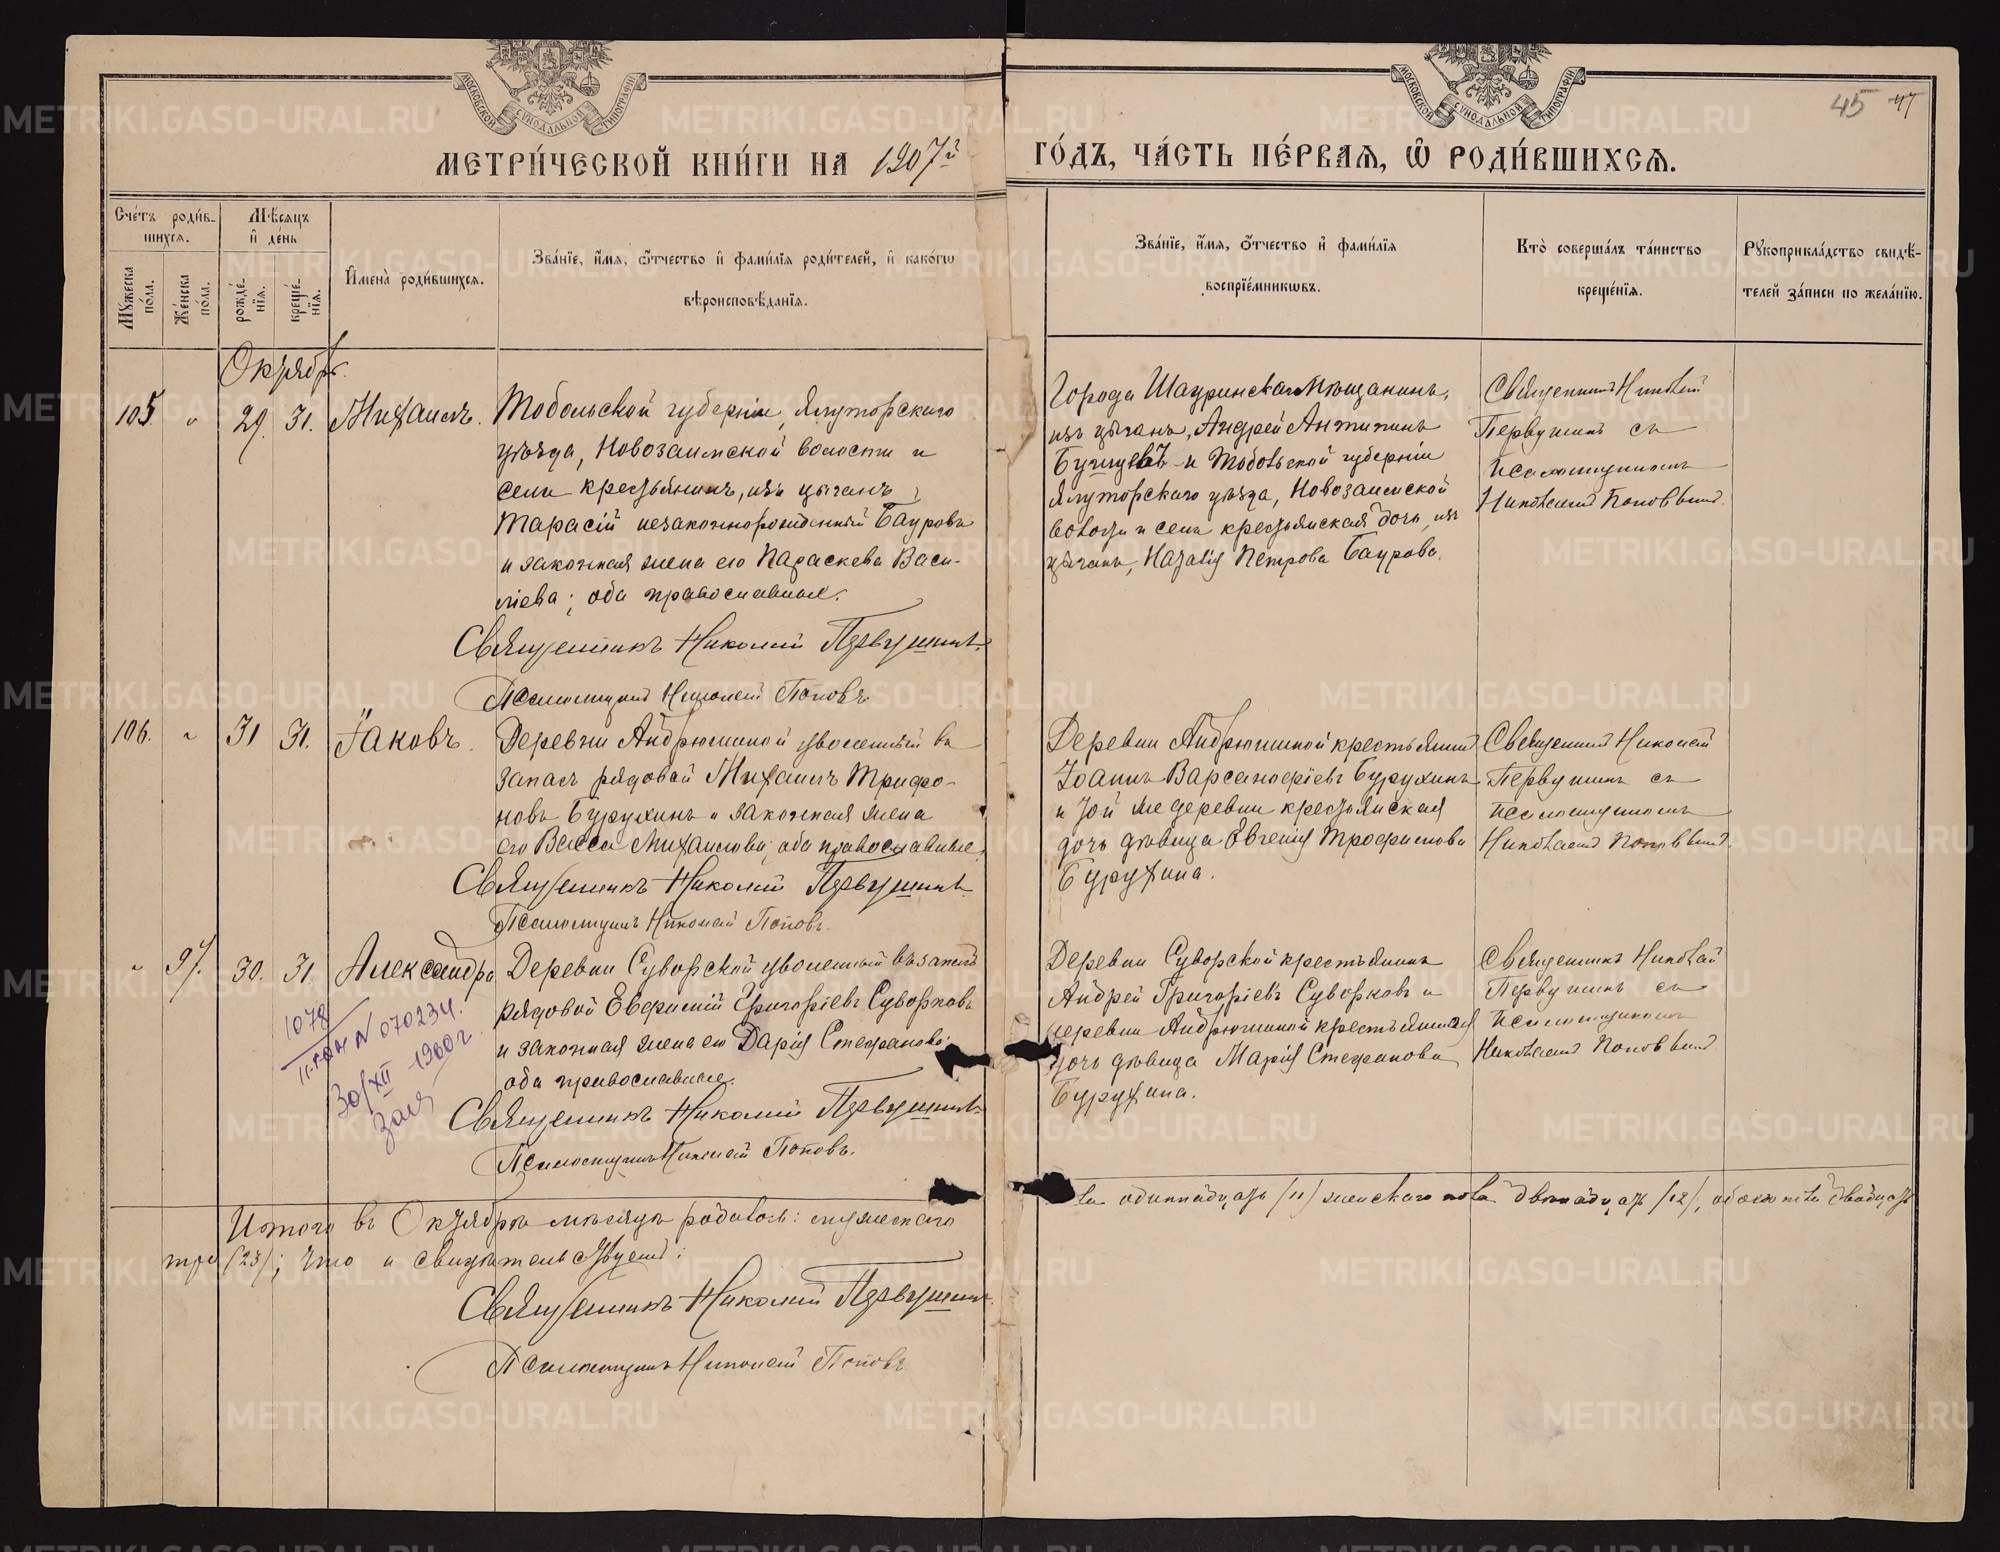 МЕТРИ́ЧЕСКОЙ КНИ́ГИ НА 1907й ГО́ДЪ, ЧА́СТЬ ПЕ́РВАѦ, Ѡ҆ РОДИ́ВШИХСѦ.
45 47
МОСКОВСКОЙ СѴНОДАЛЬНОЙ ТИПОГРАФІИ
МОСКОВСКОЙ СѴНОДАЛЬНОЙ ТИПОГРАФІИ
Сче́тъ роди́в-
шихсѧ.
Мꙋ́жеска по́ла.
Же́нска по́ла.
Мѣ́сѧцъ и҆ де́нь
рожде́нїѧ.
креще́нїѧ.
И҆мена̀ роди́вшихсѧ.
Зва́нїе, и҆́мѧ, ѻ҆́тчество и҆ фами́лїѧ роди́телей, и҆ како́гѡ
вѣроисповѣ́данїѧ.
Зва́нїе, и҆́мѧ, ѻ҆́тчество и҆ фами́лїѧ
воспрїе́мникѡвъ.
Кто̀ соверша́лъ та́инство
креще́нїѧ.
Рꙋкоприкла́дство свидѣ́-
телей за́писи по жела́нїю.
Октябрь.
105. " 29. 31. Михаилъ.
Тобольской губерніи, Ялуторскаго
уѣзда, Новозаимской волости и
села крестьянинъ, изъ цыганъ,
Тарасій незаконнорожденный Бауровъ
и законная жена его Параскева Васи-
лиева; оба православные.
Священникъ Николай Первушинъ
Псаломщикъ Николай Поповъ
Города Шадринска Мѣщанинъ,
изъ цыганъ, Андрей Антипинъ
и Тобольской губерніи
Ялуторскаго уѣзда, Новозаимской
волости и села крестьянская дочь, изъ
цыганъ, Наталія Петрова Баурова.
Священникъ Николай
Первушинъ съ
псаломщикомъ
Николаемъ Поповымъ.
106. " 31 31. Іаковъ.
Деревни Андрюшиной уволенный въ
запасъ рядовой Михаилъ Трифо-
новъ Бурухинъ и законная жена
его Васса Михаилова; оба православные.
Священникъ Николай Первушинъ
Псаломщикъ Николай Поповъ.
Деревни Андрюшиной крестьянинъ
Іоаннъ Варсанофіевъ Бурухинъ
и той же деревни крестьянская
дочь дѣвица Евгенія Трофимова
Бурухина.
Священникъ Николай
Первушинъ съ
псаломщикомъ
Николаемъ Поповымъ.
" 97. 30. 31. Александра
Деревни Суворской уволенный въ запасъ
рядовой Евфимій Григоріевъ Суворковъ
и законная жена его Дарія Стефанова:
оба православные.
Священникъ Николай Первушинъ
Псаломщикъ Николай Поповъ.
Деревни Суворской крестьянинъ
Андрей Григоріевъ Суворковъ и
деревни Андрюшиной крестьянская
дочь дѣвица Марія Стефанова
Бурухина.
Священникъ Николай
Первушинъ съ
псаломщикомъ
Николаемъ Поповымъ
1078
№ 070234.
30/XII 1960г
Итого въ Октябрѣ мѣсяцѣ родилось: мужескаго пола одиннадцать /11/ женскаго пола двѣнадцать /12/, обоего пола двадцать
три /23/; что и свидѣтельствуемъ:
Священникъ Николай Первушинъ.
Псаломщикъ Николай Поповъ
METRIKI.GASO-URAL.RU